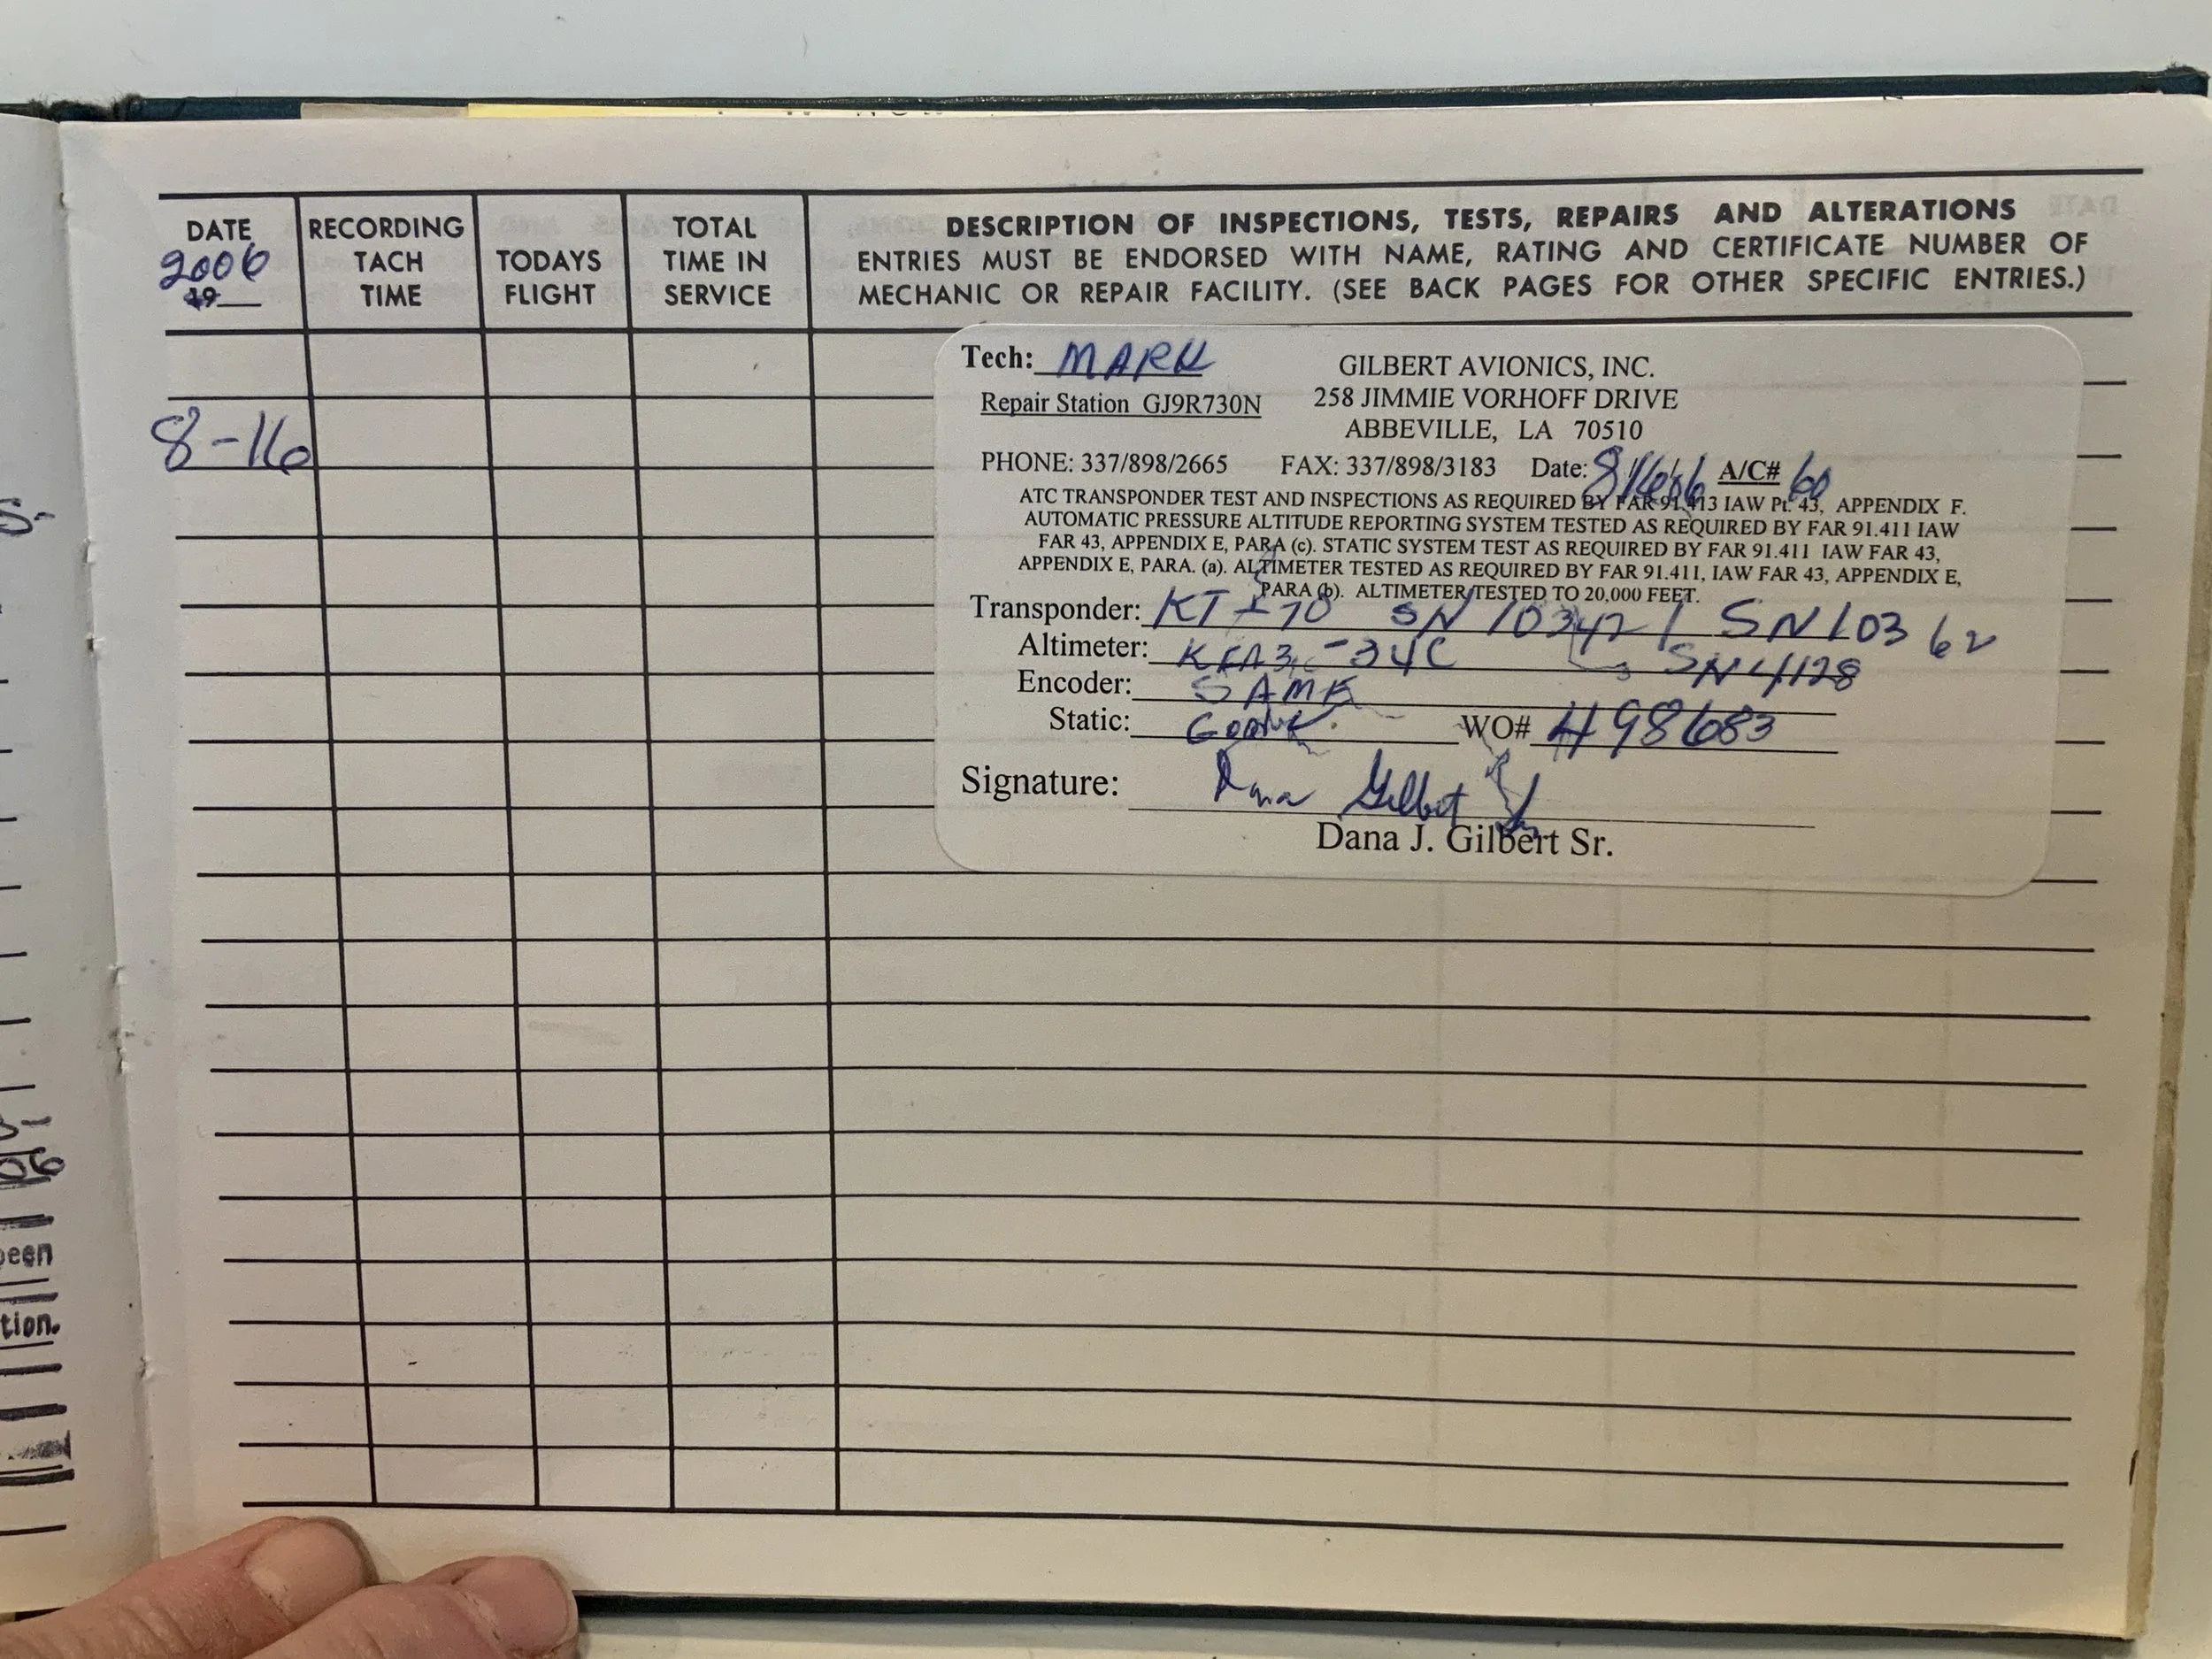 DATE
2006
19
RECORDING
TACH
TIME
TODAYS
FLIGHT
TOTAL
TIME IN
SERVICE
DESCRIPTION OF INSPECTIONS, TESTS, REPAIRS AND ALTERATIONS
ENTRIES MUST BE ENDORSED WITH NAME, RATING AND CERTIFICATE NUMBER OF
MECHANIC OR REPAIR FACILITY. (SEE BACK PAGES FOR OTHER SPECIFIC ENTRIES.)
8-16
Tech: MARK
GILBERT AVIONICS, INC.
Repair Station GJ9R730N
258 JIMMIE VORHOFF DRIVE
ABBEVILLE, LA 70510
PHONE: 337/898/2665 FAX: 337/898/3183 Date: A/C# 60
ATC TRANSPONDER TEST AND INSPECTIONS AS REQUIRED BY FAR 91.413 IAW Pt. 43, APPENDIX F.
AUTOMATIC PRESSURE ALTITUDE REPORTING SYSTEM TESTED AS REQUIRED BY FAR 91.411 IAW
FAR 43, APPENDIX E, PARA (c). STATIC SYSTEM TEST AS REQUIRED BY FAR 91.411 IAW FAR 43,
APPENDIX E, PARA. (a). ALTIMETER TESTED AS REQUIRED BY FAR 91.411, IAW FAR 43, APPENDIX E,
PARA (b). ALTIMETER TESTED TO 20,000 FEET.
Transponder: KT-70 SN SN 10362
Altimeter: SN 4128
Encoder: SAME
Static: WO# 498683
Signature: Dana Gilbert Sr
Dana J. Gilbert Sr.
S-
06
been
tion.